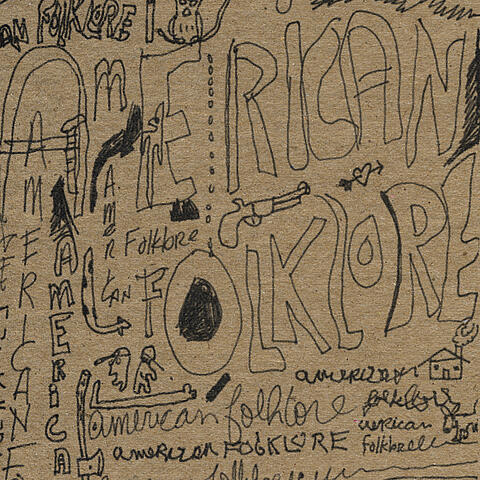 AN FOLKLORE
AMERICAN
AMERICAN
AMERICAN
AMERICA
Folklore
FOLKLORE
american
american folklore
folklore
american FOLKLORE
Folklore
folklore